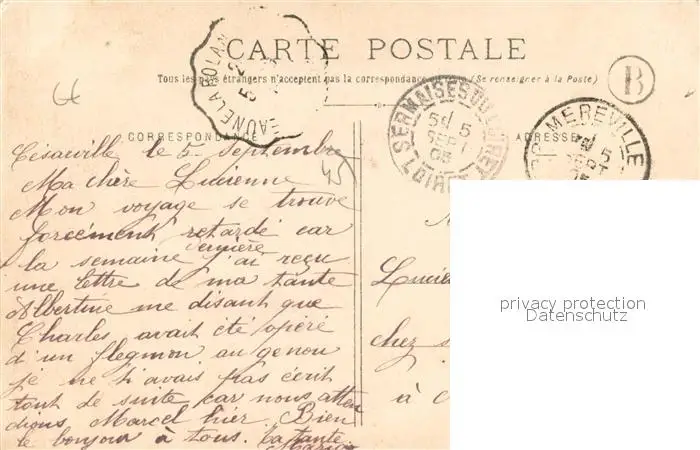 CARTE POSTALE
Tous les pays étrangers n'acceptent pas la correspondance au recto (Se renseigner à la Poste)
B
BEAUNE LA ROLAN
SERMAISES DU LOIRET
5 SEPT 05
LOIRET
MEREVILLE
5 SEPT 05
CORRESPONDANCE
ADRESSE
Césarville le 5 Septembre
45
Ma chère Lucienne
Mon voyage se trouve
forcément retardé car
la semaine dernière j'ai reçu
une lettre de ma tante
Albertine me disant que
Charles avait été opéré
d'un flegmon au genou
je ne t'avais pas écrit
tout de suite car nous atten
dions Marcel hier. Bien
le bonjour à tous. Ta tante
Maria
Lucie
chez
à
privacy protection
Datenschutz